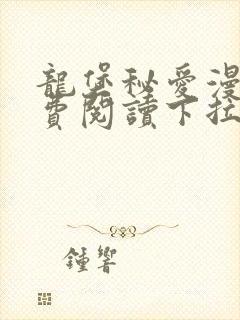 龍堡秘愛漫
費閱讀下拉
鍾響